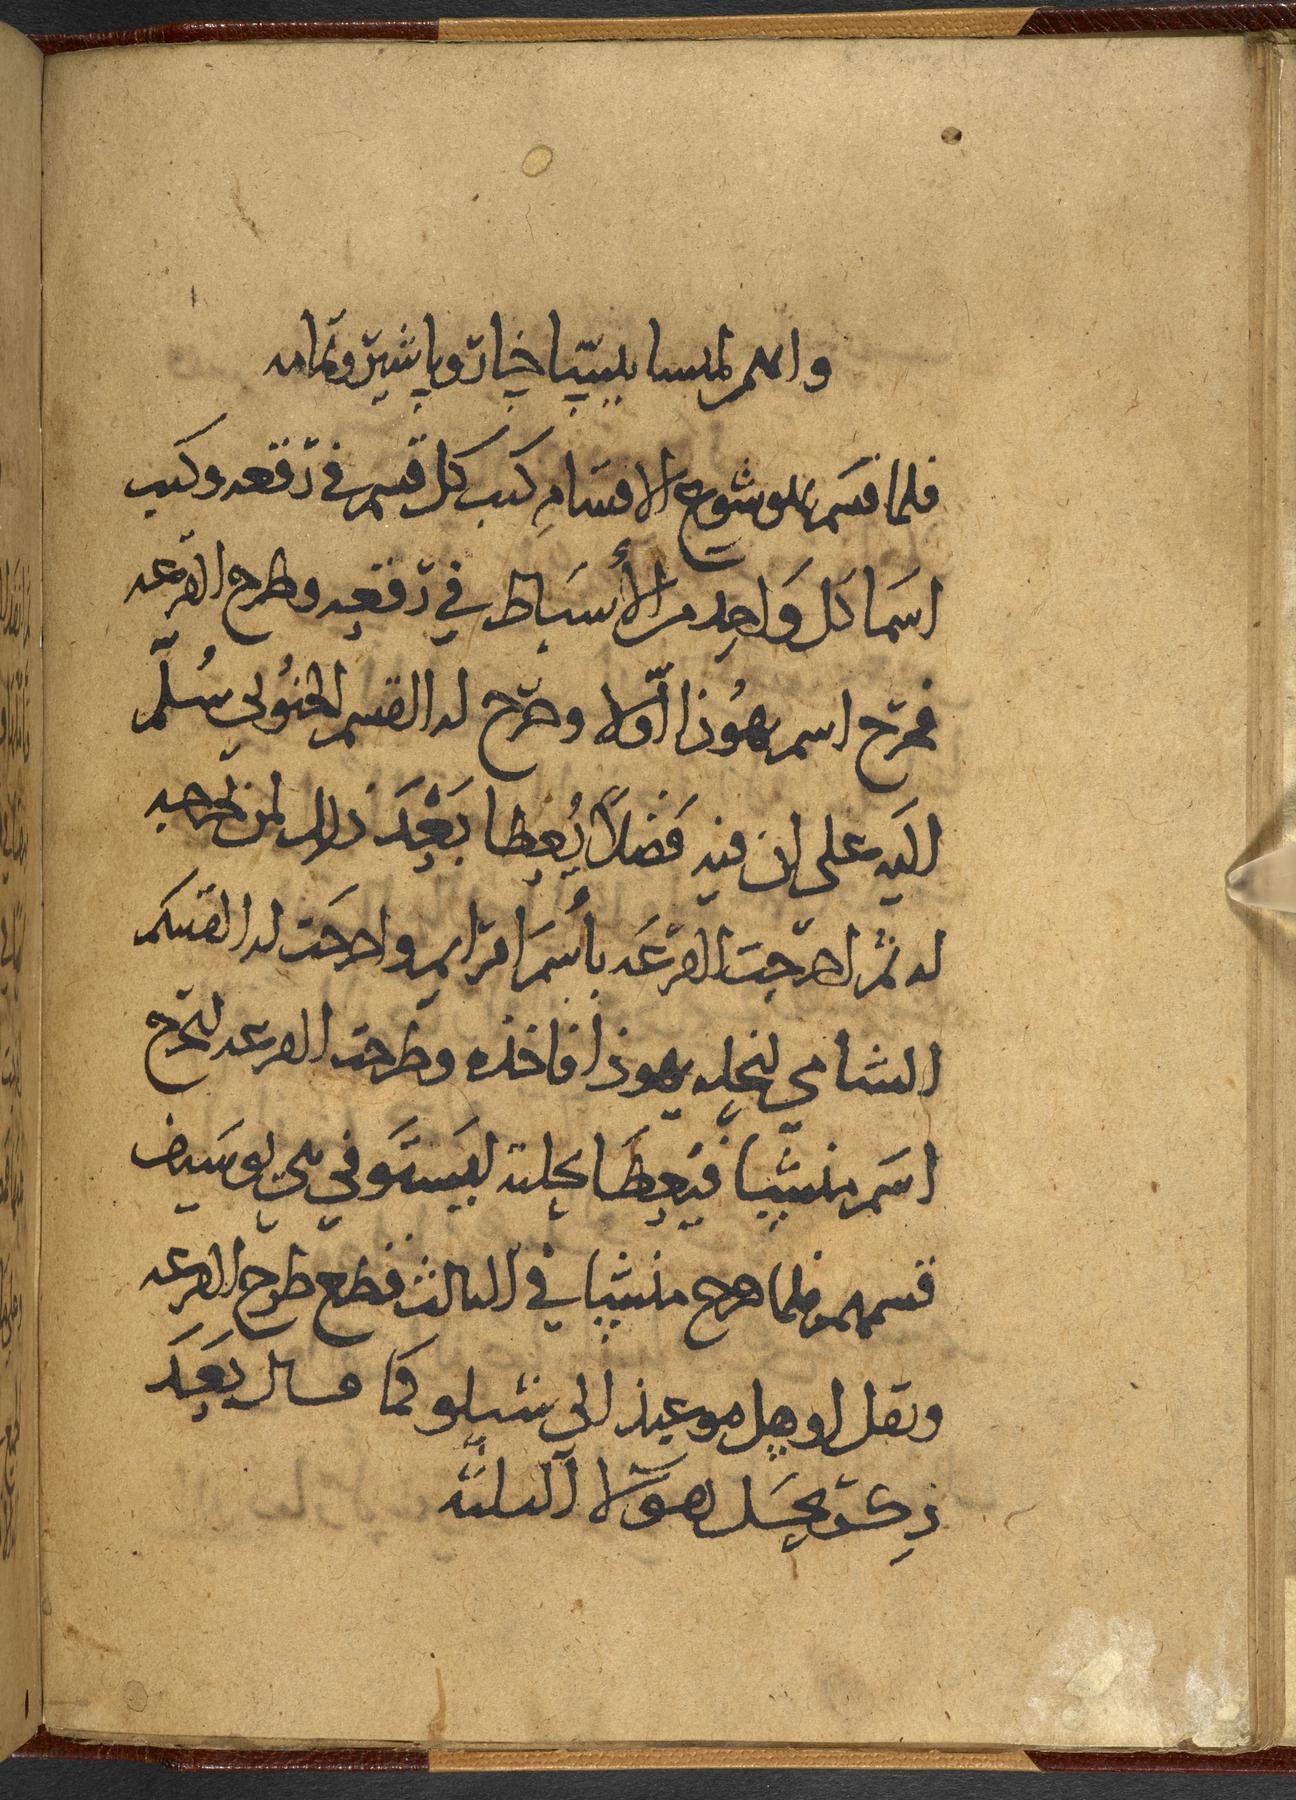 وامر لمسا بيتبا خبار وباشير وتمامه
فلما قسم يهوشوع الاقسام كتب كل قسم في رقعه وكتب
اسما كل واحد من الأسباط في رقعه وطرح القرعه
فخرج اسم يهوذا اولا وخرج له القسم الجنوبي سُلّم
اليه على ان فيه فضلا يُعطا بعد ذلك لمن تخرجه
له ثم اخرجت القرعه بأسم افرايم واخرجت له القسم
الشامي لنحله يهوذا فاخذه وطرحت القرعه ليخرج
اسم منشيا فيعطا نحلته ليستوفي بني يوسيف
قسمهم فلما خرج منشيا في الثالث قطع طرح القرعه
ونقل اوهل موعيذ الى شيلو كما قال بعد
ذكر نحل هولا الثلثه